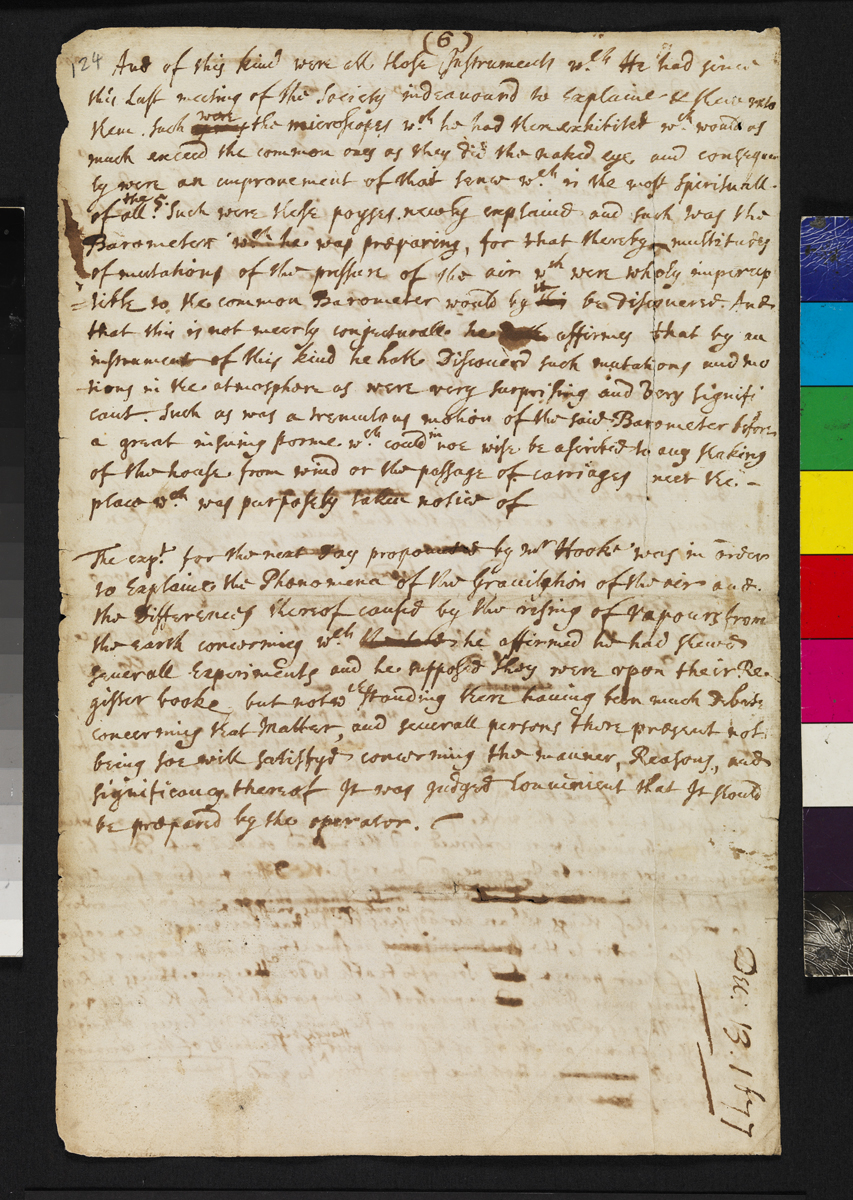 (6)
124
And of this kind were all those Instruments wch He had since
this Last meeting of the Society indeavourd to Explaine & shew unto
them. Such were the microscopes wch he had then exhibited wch would as
much exceed the common ones as they did the naked eye and consequen
ly were an improvement of that sence wch is the most spirituall
of all the 5. Such were those newly explained and such was the
Barometer wch he was prepairing, for that thereby multitudes
of mutations of the pressure of the air wch were wholy impercep
tible to the common Barometer would by it be discovered. And
that this is not meerly conjecturall he affirmes that by an
instrument of this kind he hath Discoverd such mutations and mo
tions in the atmosphere as were very surprising and very signifi
cant. Such as was a tremulous motion of the said Barometer before
a great insuing storme wch could in noe wise be ascribed to any shaking
of the house from wind or the passage of carriages neer the
place wch was purposely taken notice of
The expt for the next Day propounded by mr Hooke was in order
to Explaine the Phenomena of the Gravitation of the air and
the differences thereof caused by the rising of vapours from
the earth concerning wch he affirmed he had shewed
severall Experiments and he supposed they were upon their Re
gister booke but notwthstanding there having been much debate
concerning that Matter, and severall persons there present not
being soe well satisfyd concerning the manner, Reasons, and
significancy thereof It was judged Convenient that It should
be prepared by the operator.
Dec. 13. 1677